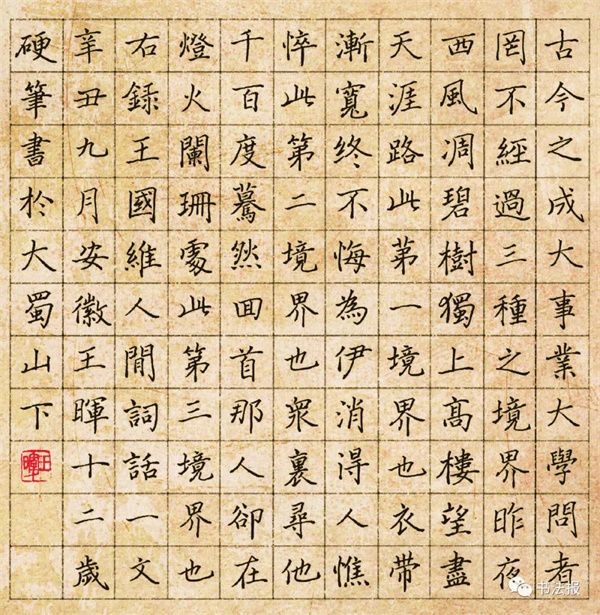 古今之成大事業大學問者
罔不經過三種之境界昨夜
西風凋碧樹獨上髙樓望盡
天涯路此第一境界也衣带
漸寬終不悔為伊消得人憔
悴此第二境界也衆裏尋他
千百度驀然回首那人卻在
燈火闌珊處此第三境界也
右錄王國維人間詞話一文
辛丑九月安徽王暉十二歲
硬筆書於大蜀山下
书法报